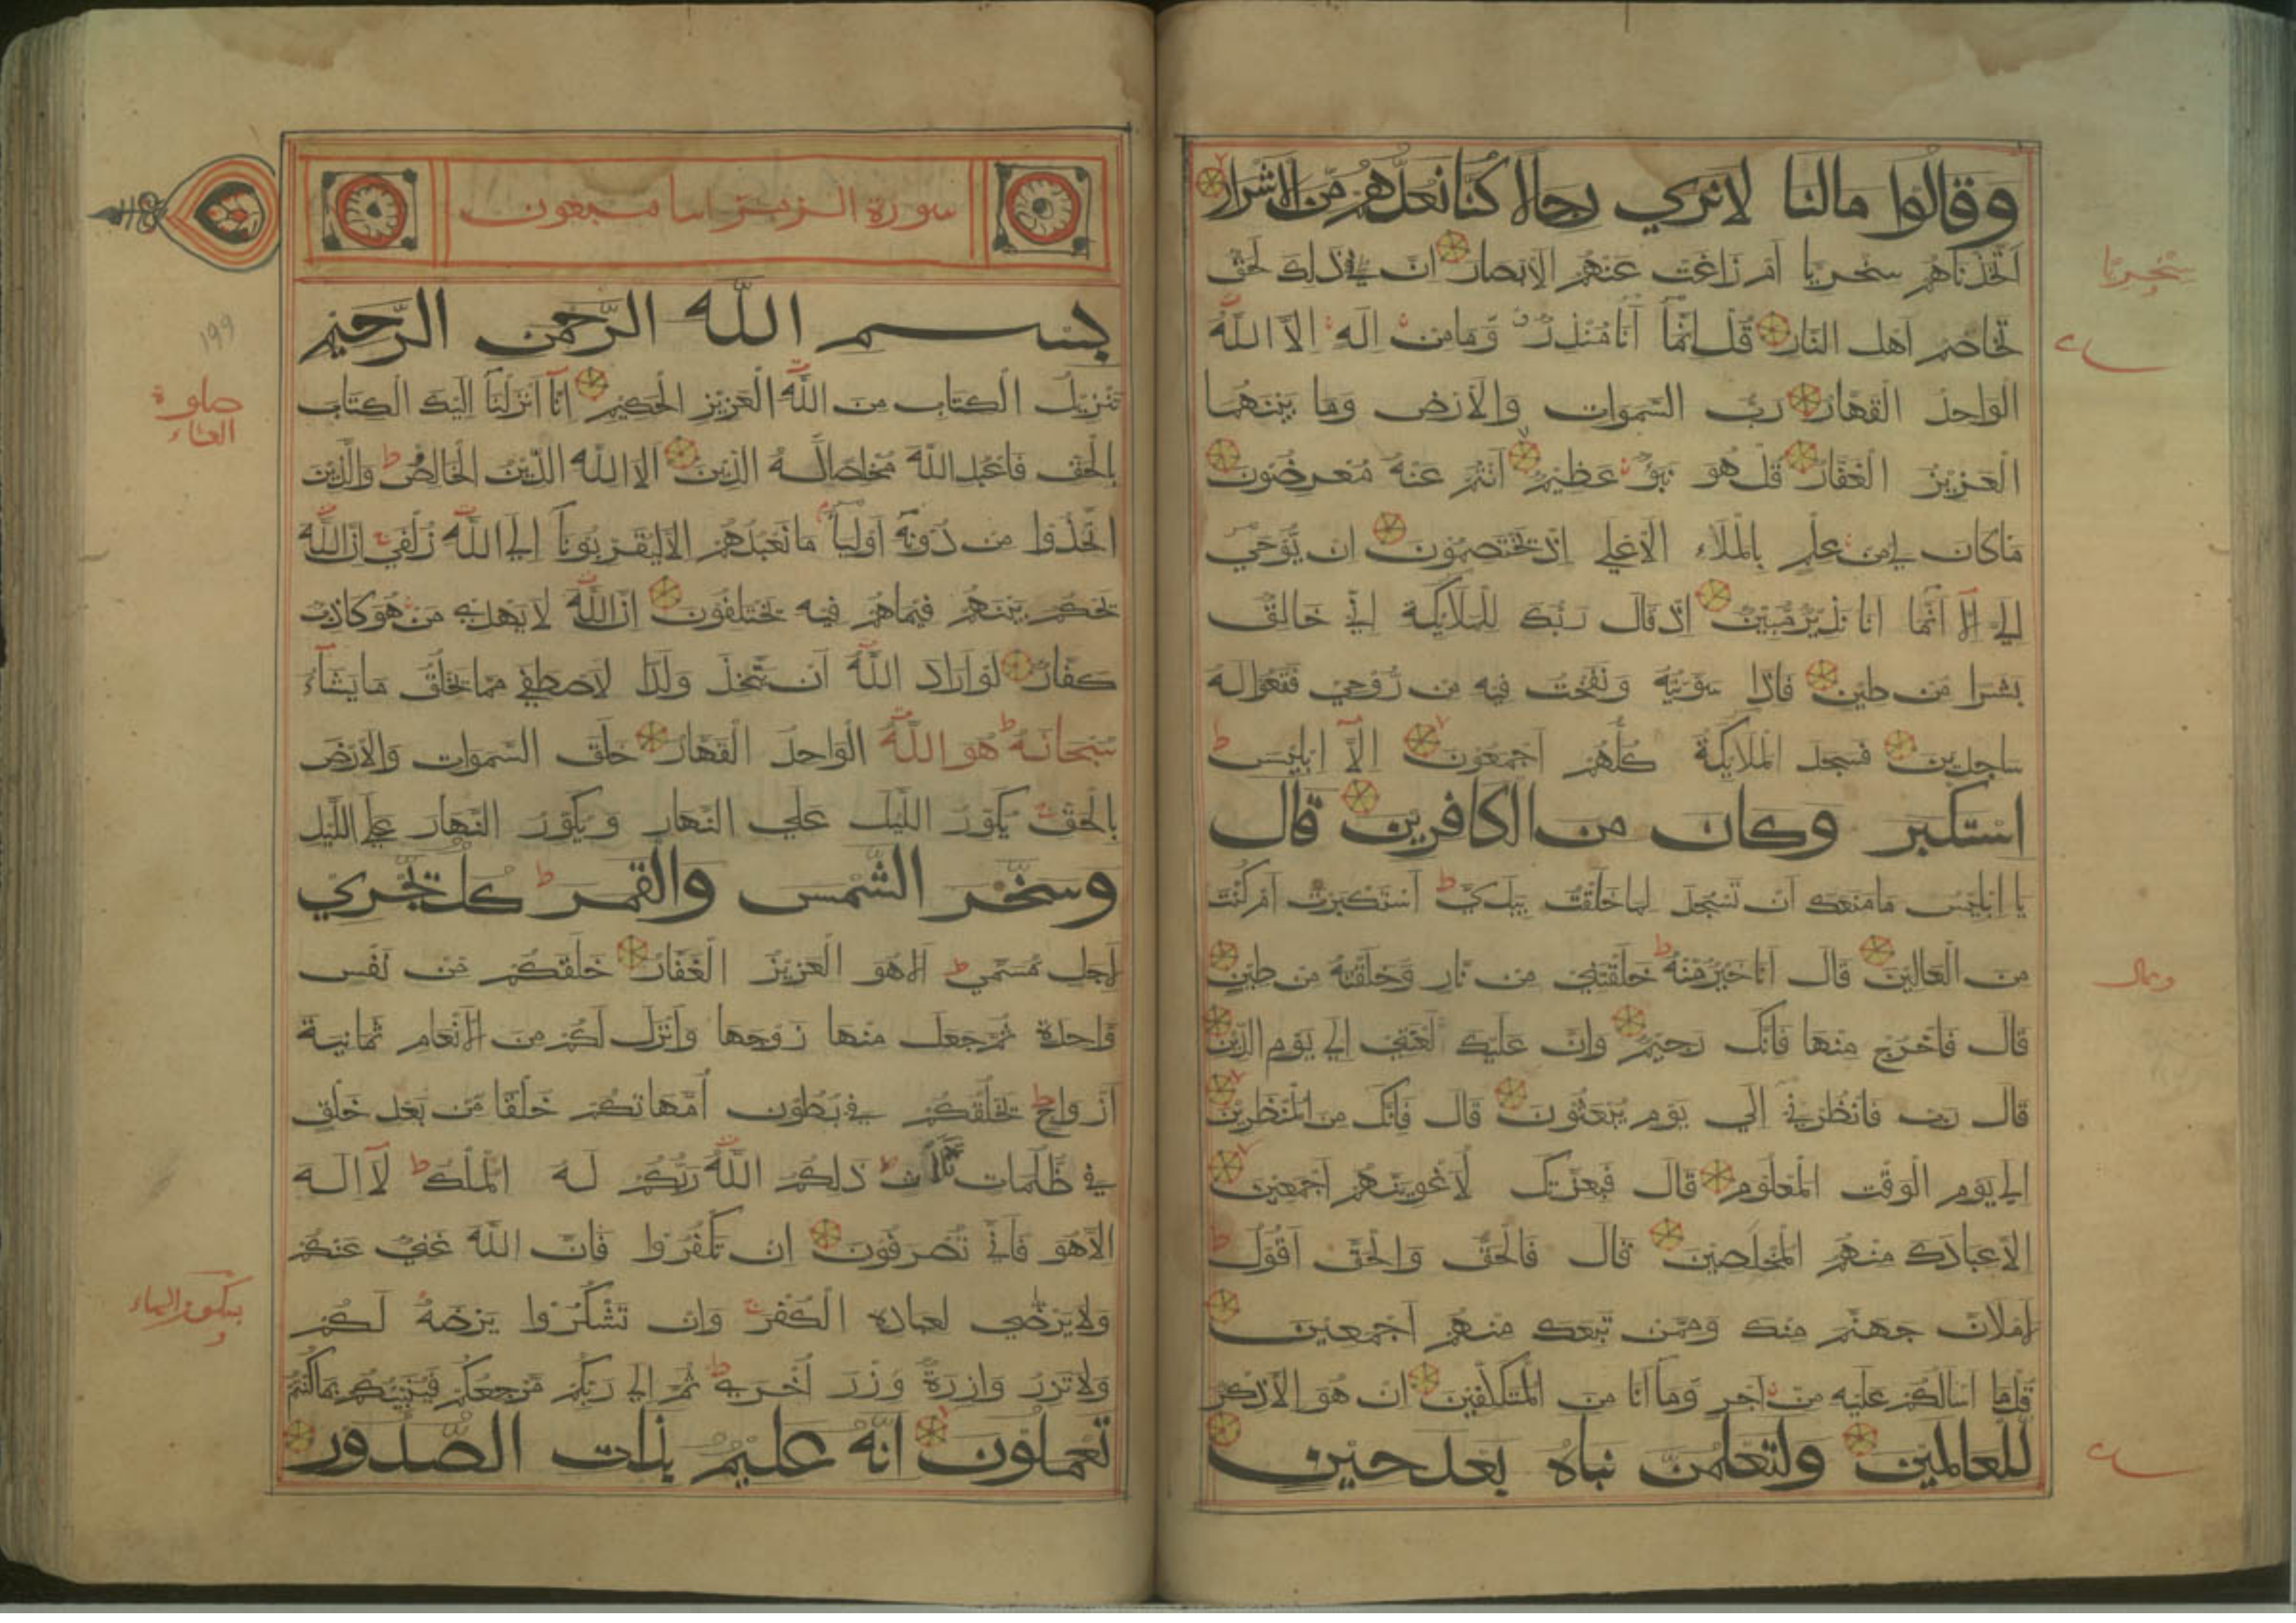 وقالوا مالنا لانري رجالا كنا نعدهم من الاشرار
اتخذناهم سخريا ام زاغت عنهم الابصار ان في ذلك لحق
تخاصم اهل النار قل انما انا منذر وما من اله الا الله
الواحد القهار رب السموات والارض وما بينهما
العزيز الغفار قل هو نبؤ عظيم انتم عنه معرضون
ما كان لي من علم بالملاء الاعلي اذ يختصمون ان يوحي
الي الا انما انا نذير مبين اذ قال ربك للملايكة اني خالق
بشرا من طين فاذا سويته ونفخت فيه من روحي فقعوا له
ساجدين فسجد الملايكة كلهم اجمعون الا ابليس
استكبر وكان من الكافرين قال
يا ابليس ما منعك ان تسجد لما خلقت بيدي استكبرت ام كنت
من العالين قال انا خير منه خلقتني من نار وخلقته من طين
قال فاخرج منها فانك رجيم وان عليك لعنتي الي يوم الدين
قال رب فانظرني الي يوم يبعثون قال فانك من المنظرين
الي يوم الوقت المعلوم قال فبعزتك لاغوينهم اجمعين
الا عبادك منهم المخلصين قال فالحق والحق اقول
لاملان جهنم منك وممن تبعك منهم اجمعين
قل ما اسالكم عليه من اجر وما انا من المتكلفين ان هو الا ذكر
للعالمين ولتعلمن نباه بعد حين
سخريا
سورة الزمر
بسم الله الرحمن الرحيم
تنزيل الكتاب من الله العزيز الحكيم انا انزلنا اليك الكتاب
بالحق فاعبد الله مخلصا له الدين الا لله الدين الخالص والذين
اتخذوا من دونه اولياء ما نعبدهم الا ليقربونا الي الله زلفي ان الله
يحكم بينهم فيما هم فيه يختلفون ان الله لا يهدي من هو كاذب
كفار لو اراد الله ان يتخذ ولدا لاصطفي مما يخلق ما يشاء
سبحانه هو الله الواحد القهار خلق السموات والارض
بالحق يكور الليل علي النهار ويكور النهار علي الليل
وسخر الشمس والقمر كل يجري
لاجل مسمي الا هو العزيز الغفار خلقكم من نفس
واحدة ثم جعل منها زوجها وانزل لكم من الانعام ثمانية
ازواج يخلقكم في بطون امهاتكم خلقا من بعد خلق
في ظلمات ثلاث ذلكم الله ربكم له الملك لا اله
الا هو فاني تصرفون ان تكفروا فان الله غني عنكم
ولا يرضي لعباده الكفر وان تشكروا يرضه لكم
ولا تزر وازرة وزر اخري ثم الي ربكم مرجعكم فينبيكم بما كنتم
تعملون انه عليم بذات الصدور
١٩٩